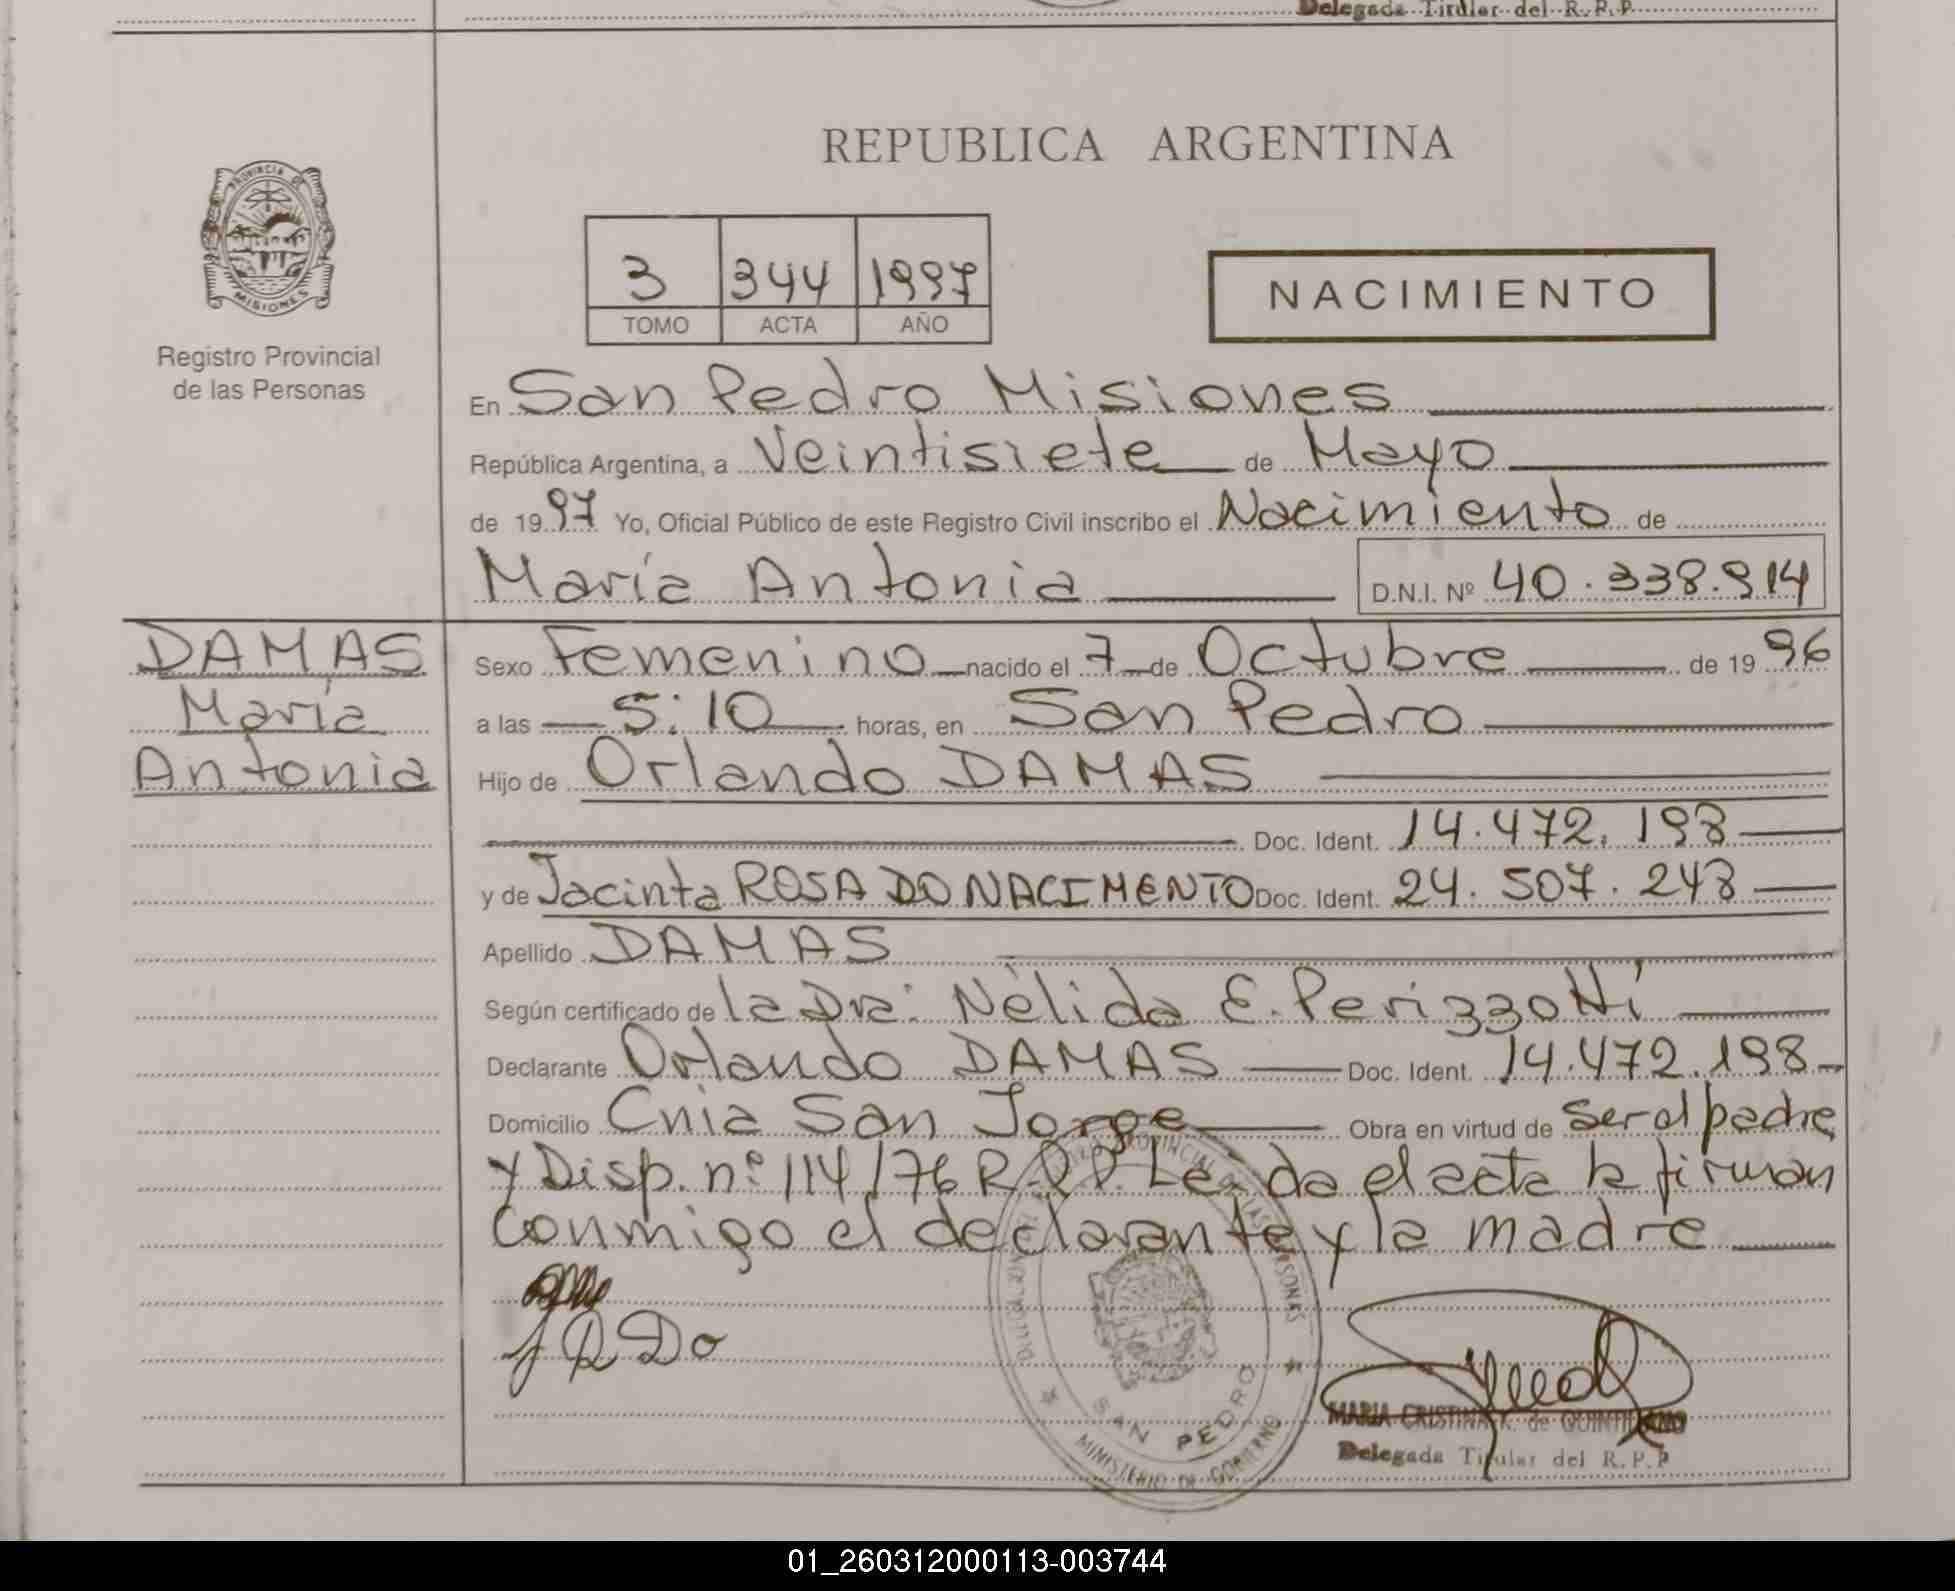 Delegada Titular del R.P.P
REPUBLICA ARGENTINA
PROVINCIA DE
MISIONES
Registro Provincial
de las Personas
3 344 1997
TOMO ACTA AÑO
NACIMIENTO
En San Pedro Misiones
República Argentina, a Veintisiete de Mayo
de 1997 Yo, Oficial Público de este Registro Civil inscribo el Nacimiento de
María Antonia D.N.I. Nº 40.338.914
DAMAS
María
Antonia
Sexo Femenino nacido el 7 de Octubre de 1996
a las 5:10 horas, en San Pedro
Hijo de Orlando DAMAS
Doc. Ident. 14.472.198
y de Jacinta ROSA DO NACIMENTO Doc. Ident. 24.507.248
Apellido DAMAS
Según certificado de la Dra: Nélida E. Perizzotti
Declarante Orlando DAMAS Doc. Ident. 14.472.198
Domicilio Cnia San Jorge Obra en virtud de ser el padre
y Disp. nº 114/76 R.P.P. Leída el acta la firman
conmigo el declarante y la madre
J R Do
SAN PEDRO
MINISTERIO DE GOBIERNO
MARIA CRISTINA K. de QUINTILIANO
Delegada Titular del R.P.P
01_260312000113-003744